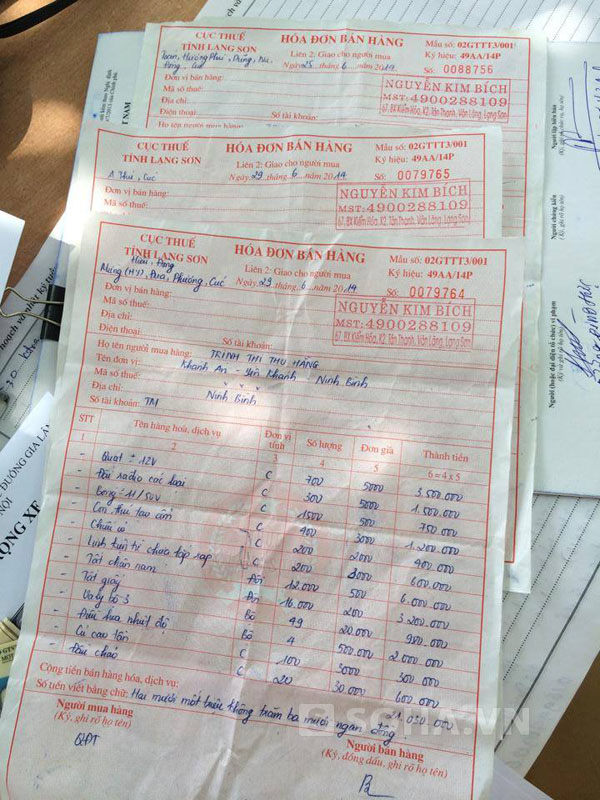 CỤC THUẾ
TỈNH LẠNG SƠN
HÓA ĐƠN BÁN HÀNG
Liên 2: Giao cho người mua
Ngày 25 tháng 6 năm 2014
Mẫu số: 02GTTT3/001
Ký hiệu: 49AA/14P
Số: 0088756
Đơn vị bán hàng:
Mã số thuế:
Địa chỉ:
Điện thoại:
Số tài khoản:
NGUYỄN KIM BÍCH
MST: 4900288109
67, BX Kiểm Hóa, K2, Tân Thanh, Văn Lãng, Lạng Sơn
CỤC THUẾ
TỈNH LẠNG SƠN
HÓA ĐƠN BÁN HÀNG
Liên 2: Giao cho người mua
Ngày 29 tháng 6 năm 2014
Mẫu số: 02GTTT3/001
Ký hiệu: 49AA/14P
Số: 0079765
Đơn vị bán hàng:
Mã số thuế:
NGUYỄN KIM BÍCH
MST: 4900288109
67, BX Kiểm Hóa, K2, Tân Thanh, Văn Lãng, Lạng Sơn
CỤC THUẾ
TỈNH LẠNG SƠN
HÓA ĐƠN BÁN HÀNG
Liên 2: Giao cho người mua
Ngày 29 tháng 6 năm 2014
Mẫu số: 02GTTT3/001
Ký hiệu: 49AA/14P
Số: 0079764
Đơn vị bán hàng:
Mã số thuế:
Địa chỉ:
Điện thoại:
Số tài khoản:
NGUYỄN KIM BÍCH
MST: 4900288109
67, BX Kiểm Hóa, K2, Tân Thanh, Văn Lãng, Lạng Sơn
Họ tên người mua hàng: TRỊNH THỊ THU HẰNG
Tên đơn vị: Khánh An - Yên Khánh - Ninh Bình
Mã số thuế:
Địa chỉ: Ninh Bình
Số tài khoản: TM
STT Tên hàng hóa, dịch vụ Đơn vị tính Số lượng Đơn giá Thành tiền
1 2 3 4 5 6 = 4 x 5
- Quạt 12V C 700 5000 3.500.000
- Đầu radio các loại C 300 5000 1.500.000
- C 1500 500 750.000
- C 400 3000 1.200.000
- 200 2000 400.000
- 200 3000 600.000
- Tất chân nam Đôi 12.000 500 6.000.000
- Tất giấy Đôi 16.000 200 3.200.000
- Valy bộ 3 Bộ 49 20.000 980.000
- Bộ 4 500.000 2.000.000
- Củ cao tần C 100 3000 300.000
- Đầu chảo C 20 30.000 600.000
Cộng tiền bán hàng hóa, dịch vụ: 21.030.000
Số tiền viết bằng chữ: Hai mươi mốt triệu không trăm ba mươi ngàn đồng
Người mua hàng
(Ký, ghi rõ họ tên)
Người bán hàng
(Ký, đóng dấu, ghi rõ họ tên)
SOHA.VN